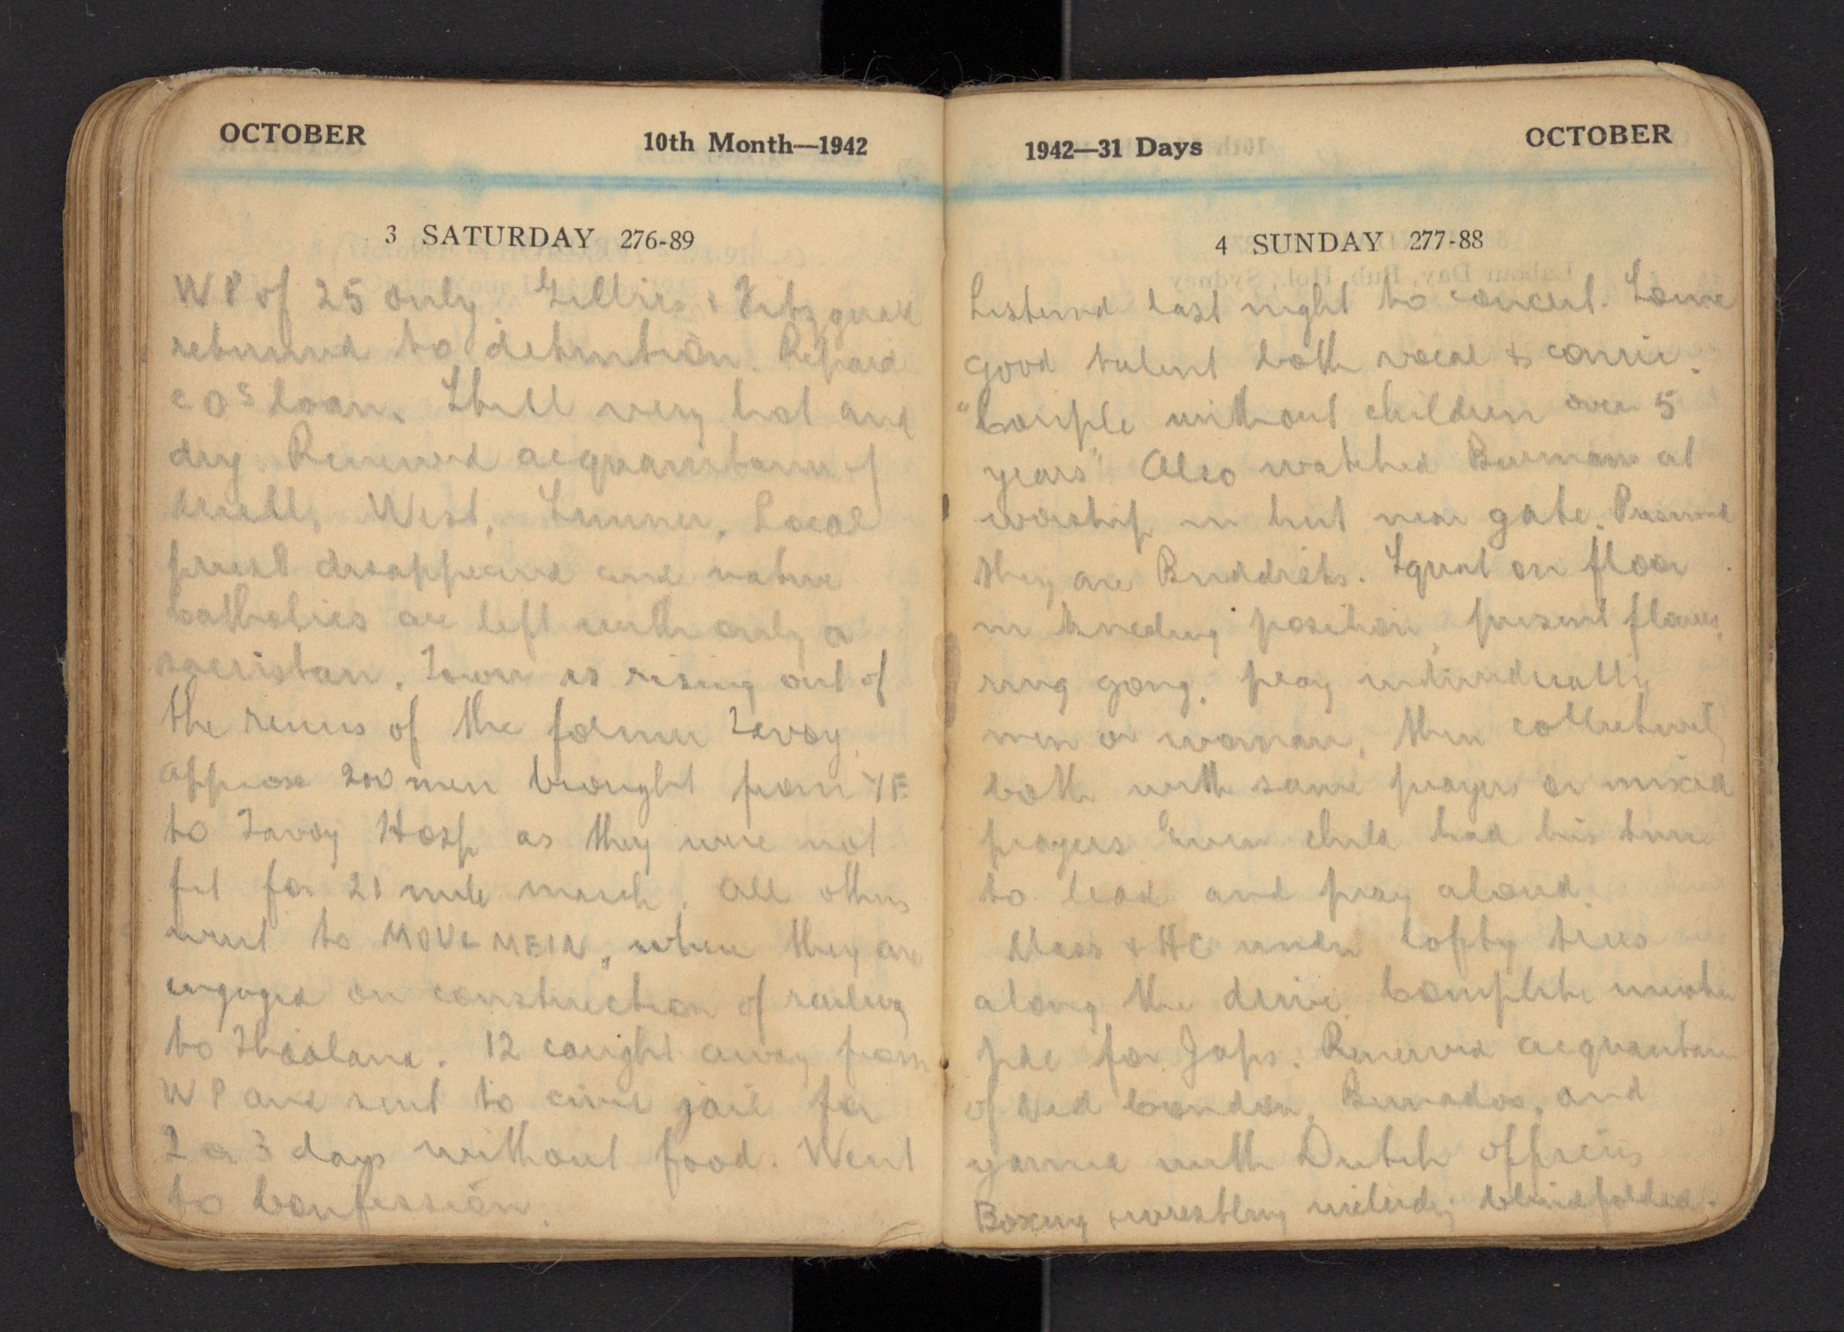 OCTOBER 10th Month—1942
3 SATURDAY 276-89
WP of 25 only. Gillies & Fitzgerald
returned to detention. Repaid
COs loan. Still very hot and
dry. Renewed acquaintance of
West, Local
priest disappeared and native
Catholics are left with only a
sacristan. Town is rising out of
the ruins of the former Tavoy.
Approx 200 men brought from YE
to Tavoy Hosp as they were not
fit for 21 mile march. All others
went to MOULMEIN, where they are
engaged on construction of railway
to Thailand. 12 caught away from
WP and sent to civil jail for
2 or 3 days without food. Went
to Confession.
1942—31 Days OCTOBER
4 SUNDAY 277-88
Listened last night to concert. Some
good talent both vocal & comic.
"Couple without children over 5
years" Also watched Burmans at
worship in hut near gate. Presumed
they are Buddists. Squat on floor
in kneeling position, present flowers,
ring gong, pray individually
men or woman, then collectively
both with same prayers or mixed
prayers Even child had his turn
to lead and pray aloud.
Mass & HC under lofty trees
along the drive. Complete
for Japs. Renewed acquaintance
of Condon, and
yarned with Dutch officers
Boxing, wrestling including blindfolded.